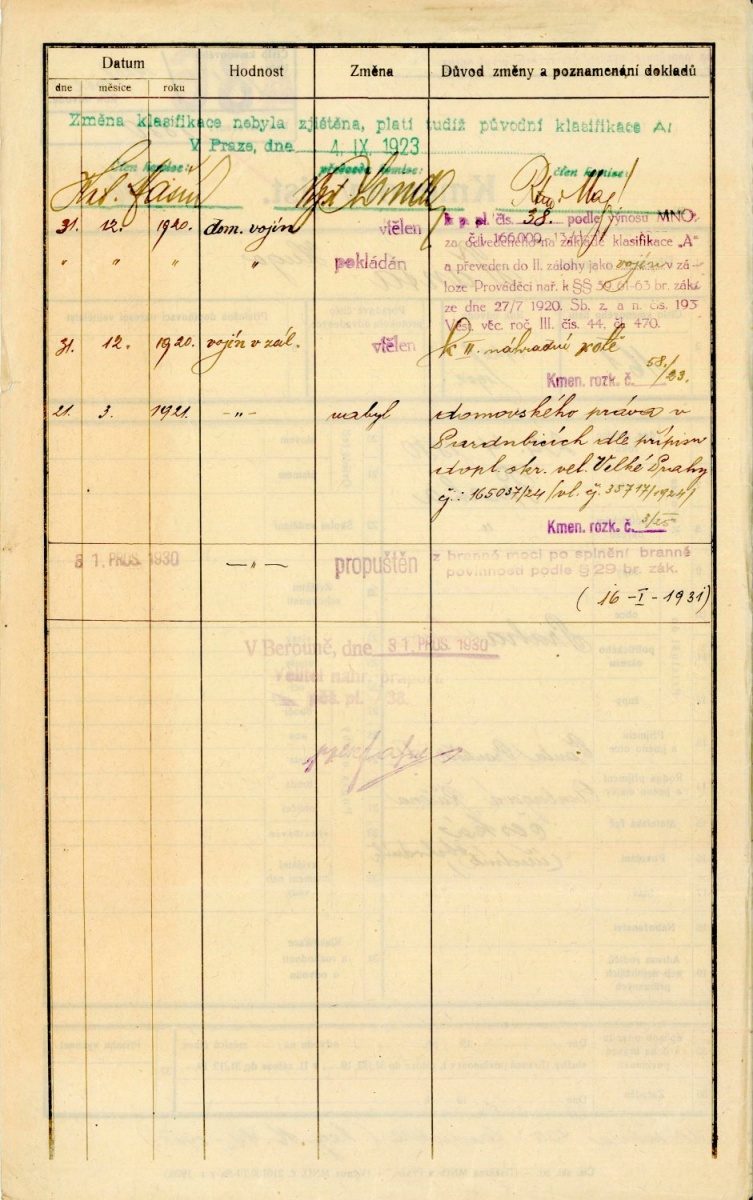 Datum
Hodnost
Změna
Důvod změny a poznamenání dokladů
dne měsíce roku
Změna klasifikace nebyla zjištěna, platí tudíž původní klasifikace A.
V Praze, dne 4. IX. 1923
člen komise: předseda komise: člen komise:
31. 12. 1920. dom. vojín vtělen k p. pl. čís. 38. podle výnosu MNO.
čís. 166.000
za odvedeného na základě klasifikace „A“
" " " " pokládán a převeden do II. zálohy jako vojín v zá-
loze Prováděcí nař. k §§ 59 61-63 br. zák.
ze dne 27/7 1920. Sb. z. a n. čís. 193
Věst. věc. roč. III. čís. 44. čl. 470.
31. 12. 1920. vojín v zál. vtělen k II. náhradní rotě
Kmen. rozk. č. 58/23.
21. 3. 1921. -"- nabyl domovského práva v
Pardubicích dle přípisu
dopl. okr. vel. Velké Prahy
č.: 165037/24 /vl. č. 35717/1924/
Kmen. rozk. č. 3/25
31. PROS. 1930 -"- propuštěn z branné moci po splnění branné
povinnosti podle § 29 br. zák.
(16-I-1931)
V Berouně, dne 31. PROS. 1930
Velitel náhr. praporu
pěš. pl. 38.